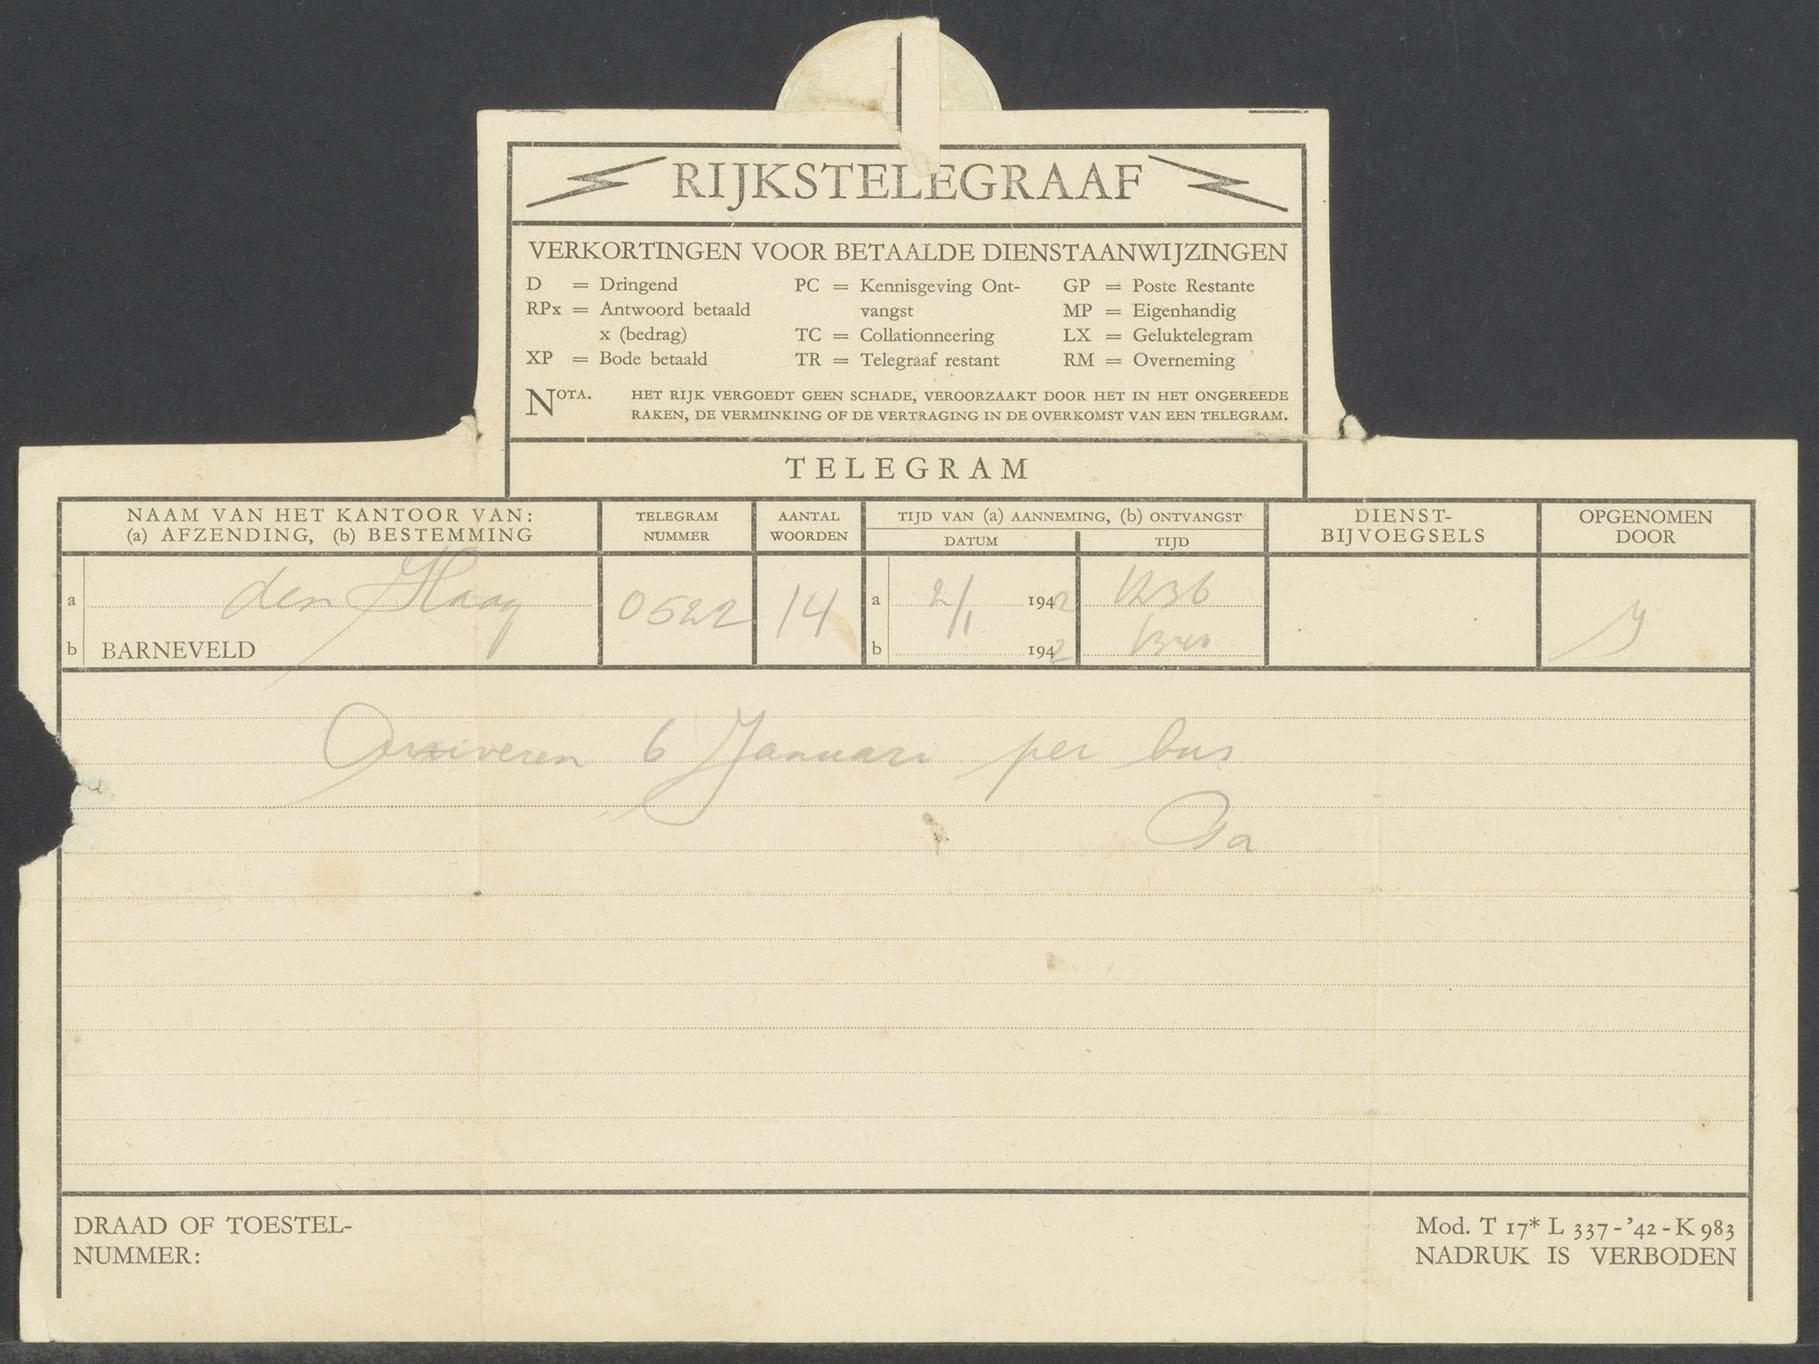 RIJKSTELEGRAAF
VERKORTINGEN VOOR BETAALDE DIENSTAANWIJZINGEN
D = Dringend
RPx = Antwoord betaald
x (bedrag)
XP = Bode betaald
PC = Kennisgeving Ont-
vangst
TC = Collationneering
TR = Telegraaf restant
GP = Poste Restante
MP = Eigenhandig
LX = Geluktelegram
RM = Overneming
NOTA. HET RIJK VERGOEDT GEEN SCHADE, VEROORZAAKT DOOR HET IN HET ONGEREEDE
RAKEN, DE VERMINKING OF DE VERTRAGING IN DE OVERKOMST VAN EEN TELEGRAM.
TELEGRAM
NAAM VAN HET KANTOOR VAN:
(a) AFZENDING, (b) BESTEMMING
TELEGRAM
NUMMER
AANTAL
WOORDEN
TIJD VAN (a) AANNEMING, (b) ONTVANGST
DATUM
TIJD
DIENST-
BIJVOEGSELS
OPGENOMEN
DOOR
a den Haag
b BARNEVELD
0522
14
a 2/1 1942 1236
b 1942
Arriveren 6 Januari per bus
DRAAD OF TOESTEL-
NUMMER:
Mod. T 17* L 337-'42-K 983
NADRUK IS VERBODEN